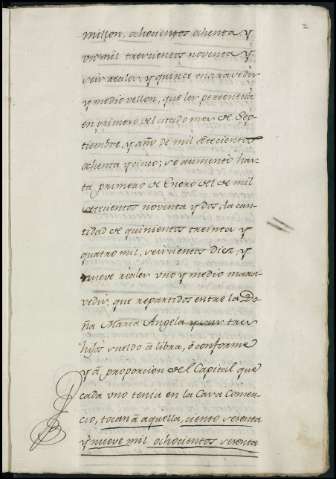 2
millon, ochocientos ochenta y
un mil trecientos noventa y
seis reales y quince maravedis
y medio vellon, que les pertenecia
en primero de el citado mes de Sep-
tiembre, y año de mil setecientos
ochenta y cinco; se aumentó has-
ta primero de Enero de el de mil
setecientos noventa y dos, la can-
tidad de quinientos treinta y
quatro mil, seiscientos diez, y
nueve reales uno y medio mara-
vedis, que repartidos entre la Do-
ña Maria Angela y sus tres
hijos sueldo a libra, ó conforme
y á proporcion de el Capital que
cada uno tenia en la Casa Comer-
cio, tocan á aquella, ciento sesenta
y nueve mil ochocientos sesenta